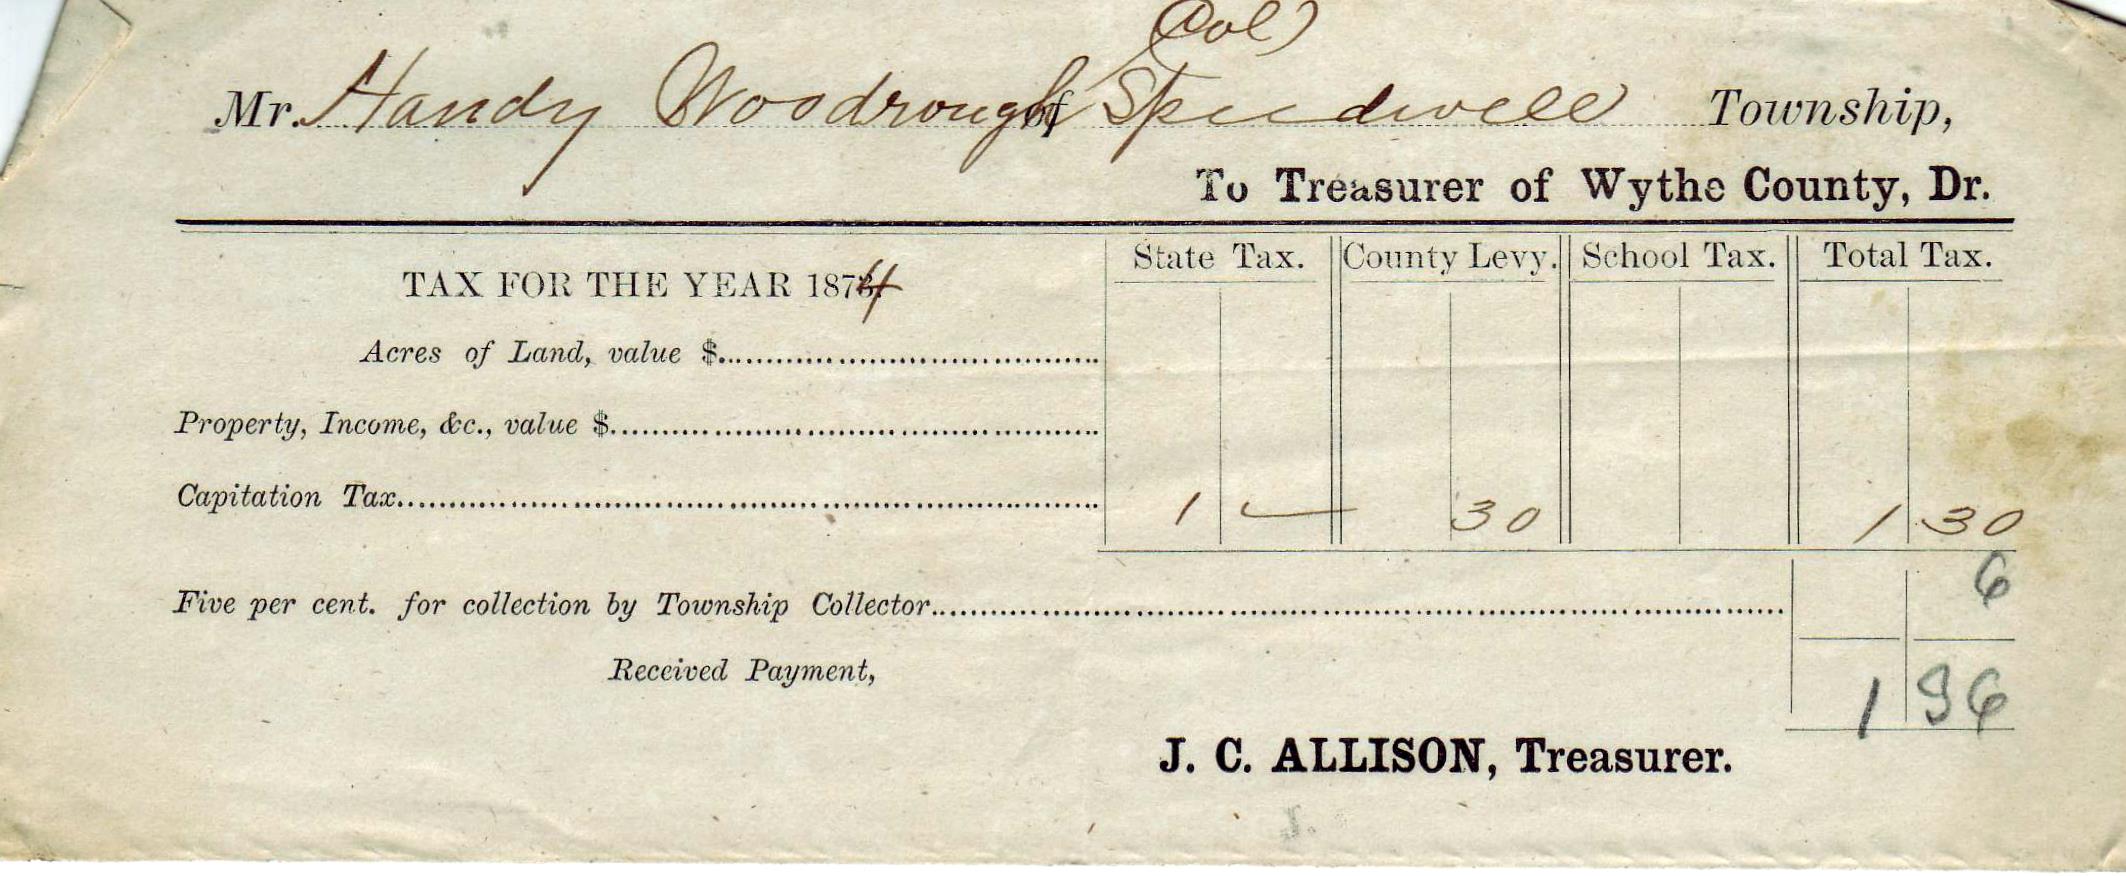 (Col)
Mr. Handy Woodrough of Speedwell Township,
To Treasurer of Wythe County, Dr.
TAX FOR THE YEAR 1874
State Tax. County Levy. School Tax. Total Tax.
Acres of Land, value $
Property, Income, &c., value $
Capitation Tax 1 — 30 1 30
Five per cent. for collection by Township Collector 6
1 36
Received Payment,
J. C. ALLISON, Treasurer.